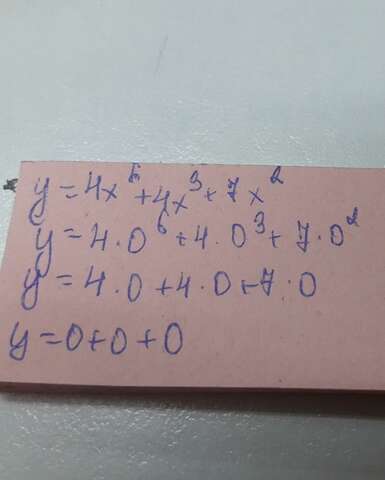 y = 4x⁶ + 4x³ + 7x²
y = 4·0⁶ + 4·0³ + 7·0²
y = 4·0 + 4·0 + 7·0
y = 0 + 0 + 0